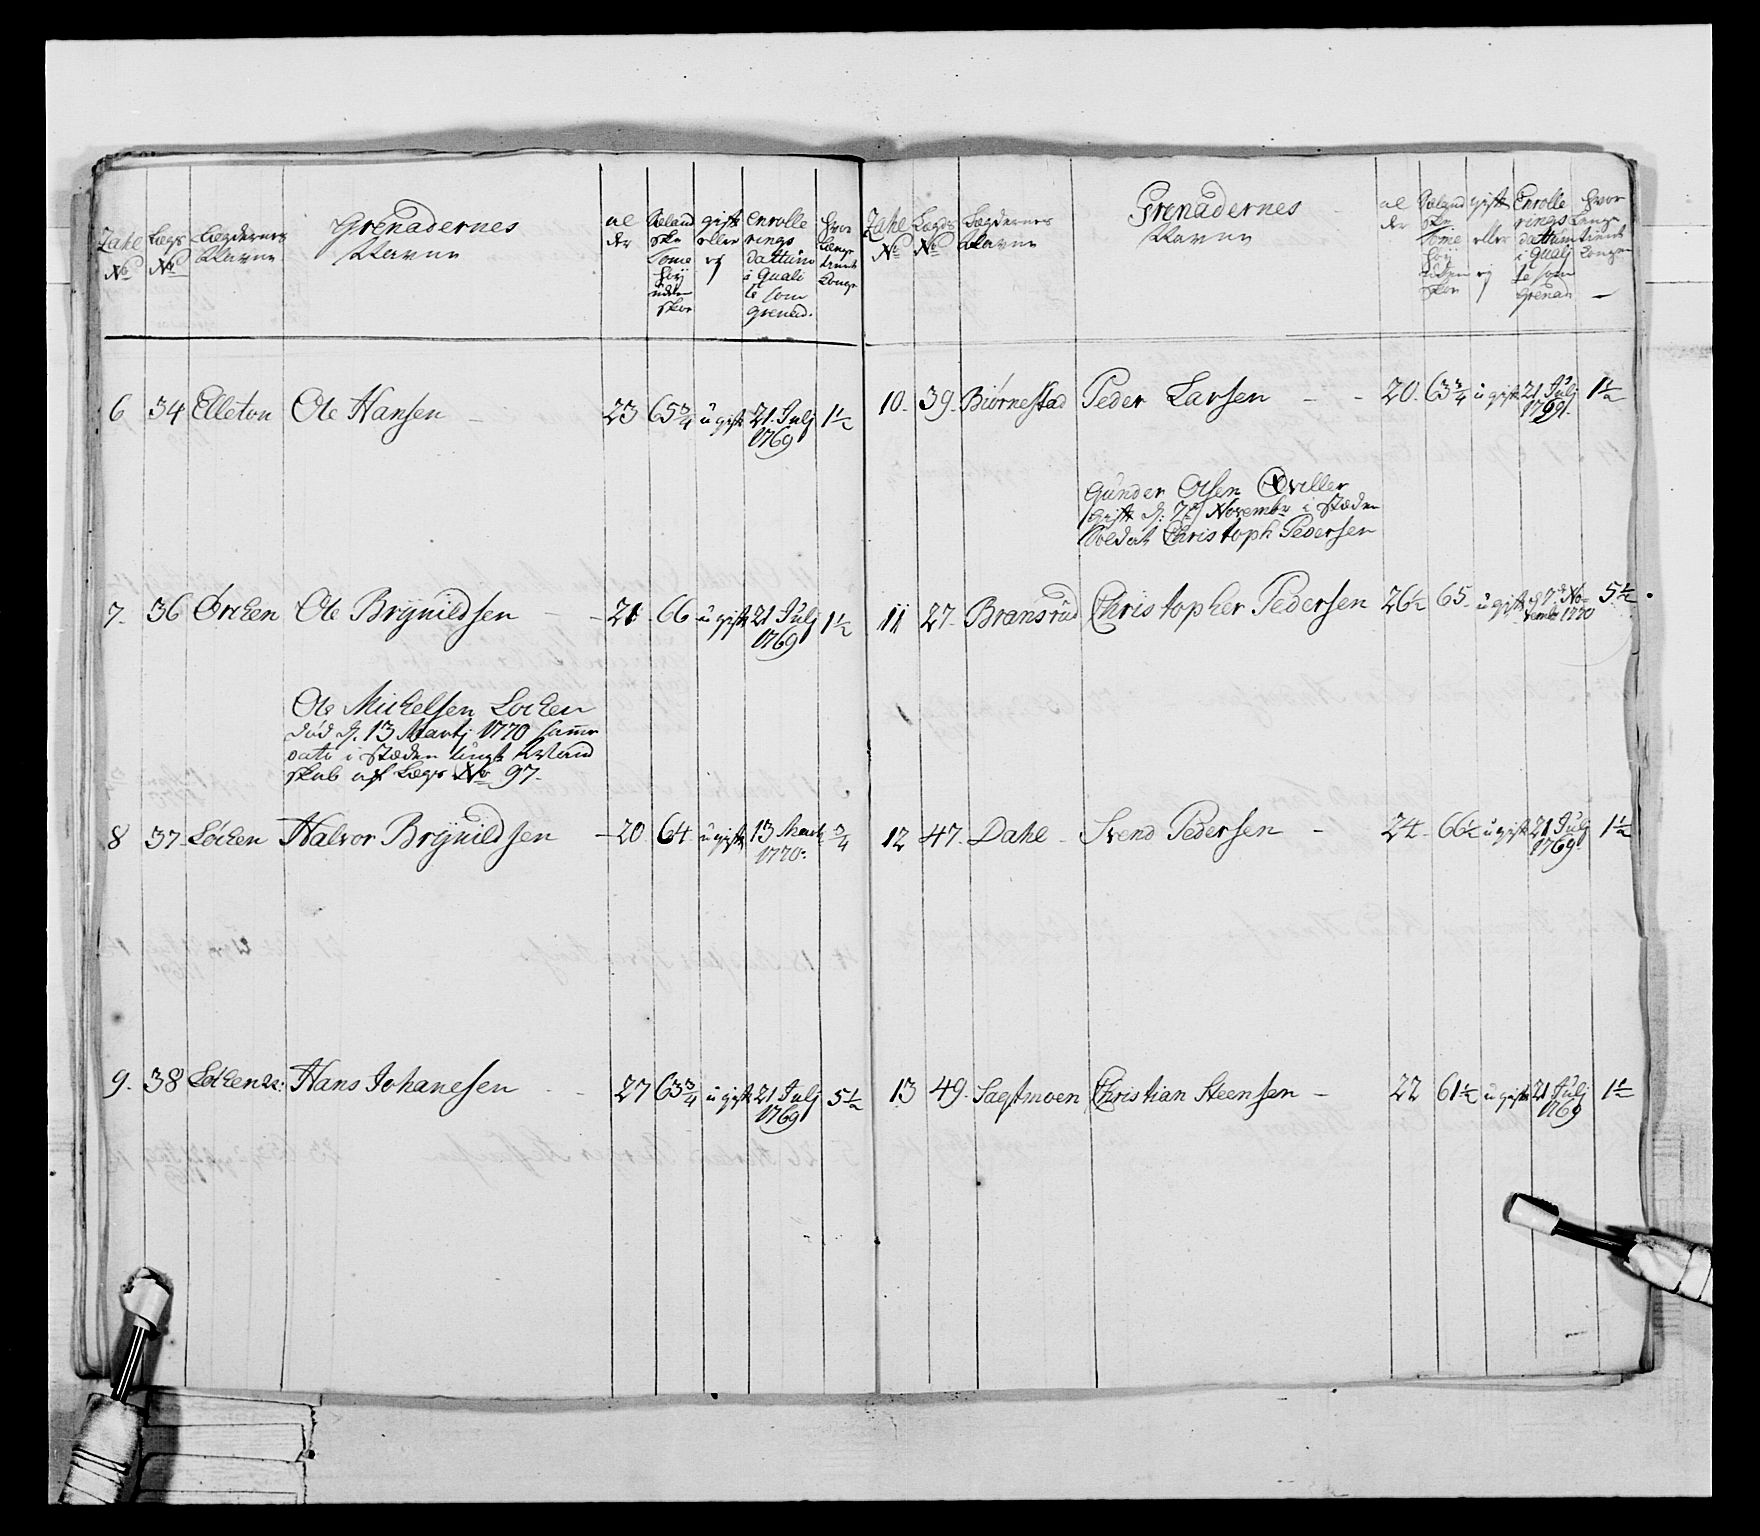 Zahl No
Lægs No
Lægdernes Navne
Grenadernes Navne
al der
Sieland ske Tome høy uden skoe
gift eller ej
Enrolle rings dattum i Quali te som grenad.
hvor Længe tient Konge
6 34 Elleton Ole Hansen - 23 65 3/4 ugift 21 Julj 1769 1 1/2
7. 36 Ørchen Ole Brynildsen - 21 66 ugift 21 Julj 1769 1 1/2
Ole Michelsen Lochen
død d. 13 Martj 1770 samme
dato i stæden
skab af Lægs No 97.
8 37. Løchen Halvor Brynildsen - 20 64 ugift 13 Martj 1770. 3/4
9. 38 Hans Johanesen - 27 63 3/4 ugift 21 Julj 1769 5 1/2
Zahl No
Lægds No
Lægdernes Navne
Grenadernes Navne
al der
Sieland ske Tome høy uden skoe
gift eller ej
Enrolle rings dattum i Qualj te som grenad
hvor Længe tient Kongen
10. 39. Biørnestad Peder Larsen - - 20. 63 3/4 ugift 21 Julj 1769. 1 1/2
Gunder Olsen Qviller
gift d: 7de Novembr i stæden
Soldat Christoph Pedersen
11 27. Bransrud Christopher Pedersen 26 1/2 65. ugift d 7de No- vembr 1770 5 1/2.
12 47. Dahl - Svend Pedersen - 24. 66 1/2 ugift 21 Julj 1769. 1 1/2
13 49. Sagtmoen Christian Steensen - 22 61 1/2 ugift 21 Julj 1769 1 1/2